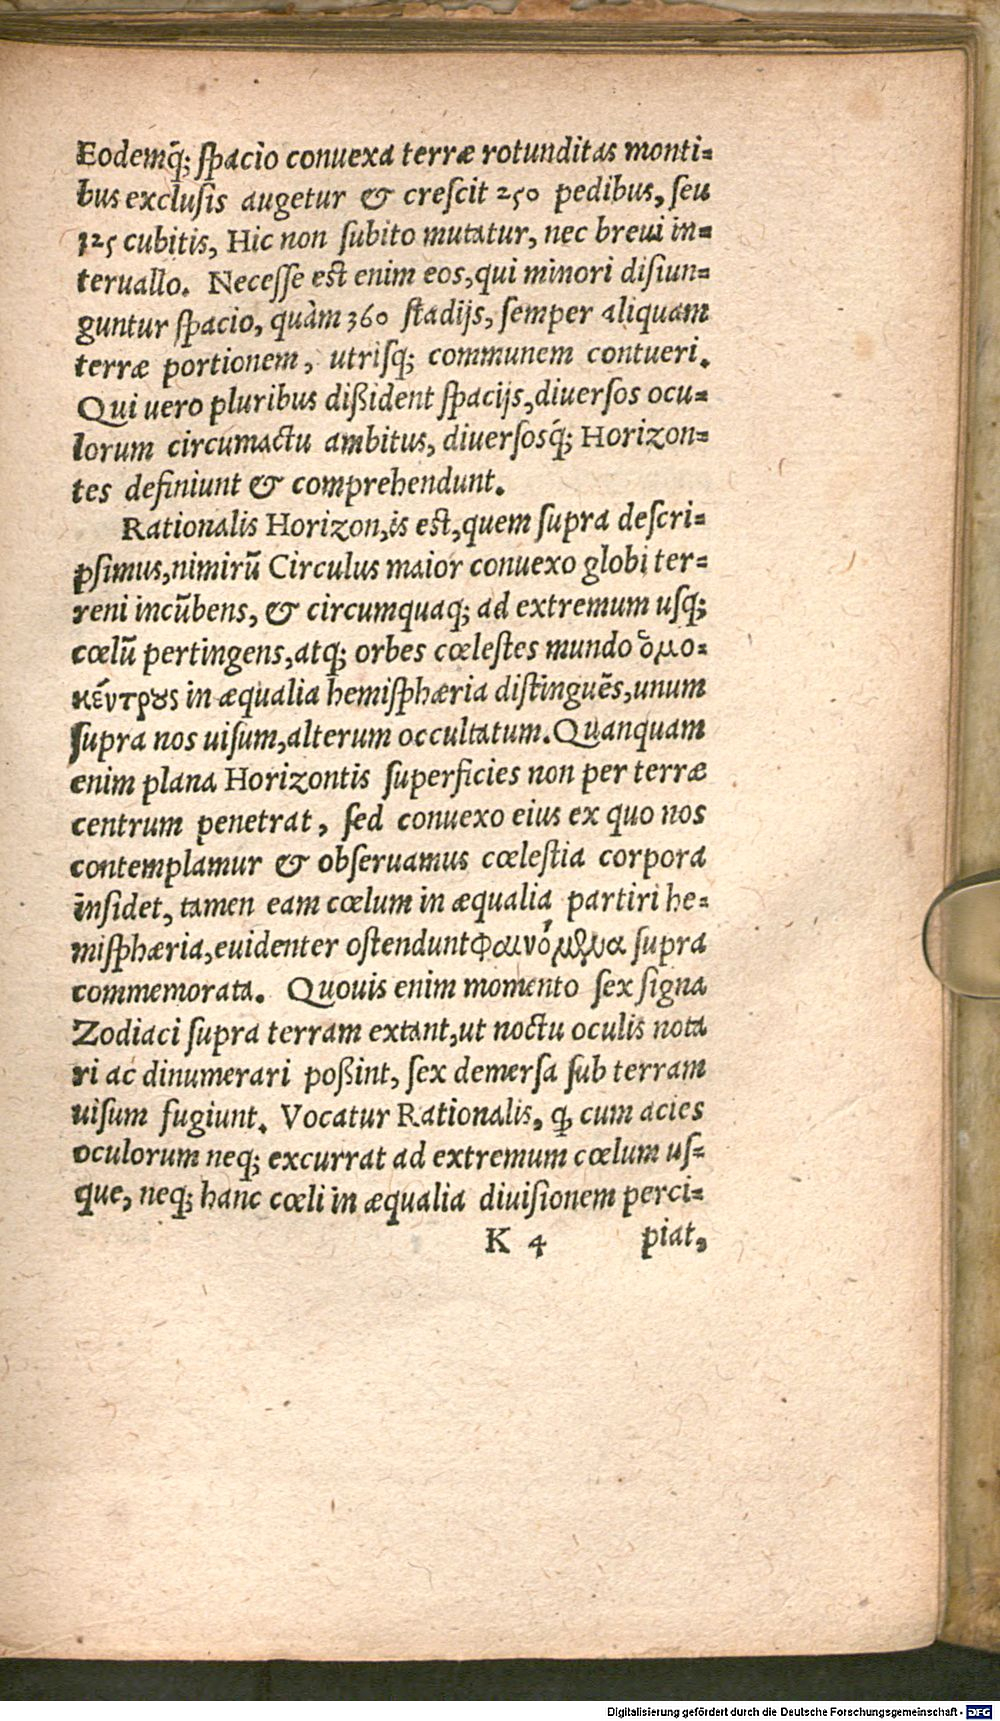 Eodemq́; ſpacio conuexa terræ rotunditas monti=
bus excluſis augetur & creſcit 250 pedibus, ſeu
125 cubitis, Hic non ſubito mutatur, nec breui in=
teruallo. Neceſſe est enim eos, qui minori diſiun=
guntur ſpacio, quàm 360 ſtadijs, ſemper aliquam
terræ portionem, utriſq; communem contueri.
Qui uero pluribus dißident ſpacijs, diuerſos ocu=
lorum circumactu ambitus, diuerſosq́; Horizon=
tes definiunt & comprehendunt.
Rationalis Horizon, is est, quem ſupra deſcri=
pſimus, nimirũ Circulus maior conuexo globi ter=
reni incũbens, & circumquaq; ad extremum uſq;
cœlũ pertingens, atq; orbes cœleſtes mundo ὁμο=
κέντρȣς in æqualia hemiſphæria diſtinguẽs, unum
ſupra nos uiſum, alterum occultatum. Quanquam
enim plana Horizontis ſuperficies non per terræ
centrum penetrat, ſed conuexo eius ex quo nos
contemplamur & obſeruamus cœleſtia corpora
inſidet, tamen eam cœlum in æqualia partiri he=
miſphæria, euidenter oſtendunt φαινόμϑμα ſupra
commemorata. Quouis enim momento ſex ſigna
Zodiaci ſupra terram extant, ut noctu oculis nota
ri ac dinumerari poßint, ſex demerſa ſub terram
uiſum fugiunt. Vocatur Rationalis, ꝙ cum acies
oculorum neq; excurrat ad extremum cœlum uſ=
que, neq; hanc cœli in æqualia diuiſionem perci=
K 4 piat,
Digitalisierung gefördert durch die Deutsche Forschungsgemeinschaft - DFG